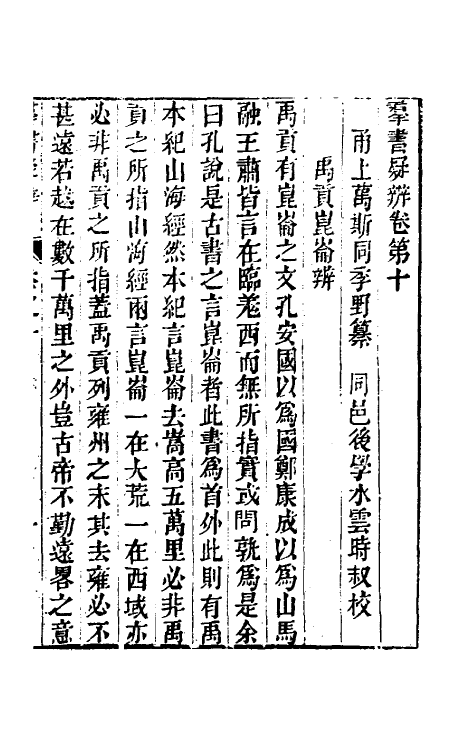 羣書疑辨卷第十
甬上萬斯同季野纂　同邑後學水雲時叔校
禹貢崑崙辨
禹貢有崑崙之文孔安國以爲國鄭康成以爲山馬
融王肅皆言在臨羌西而無所指實或問孰爲是余
曰孔說是古書之言崑崙者此書爲首外此則有禹
本紀山海經然本紀言崑崙去嵩高五萬里必非禹
貢之所指山海經兩言崑崙一在大荒一在西域亦
必非禹貢之所指蓋禹貢列雍州之末其去雍必不
甚遠若越在數千萬里之外豈古帝不勤遠畧之意